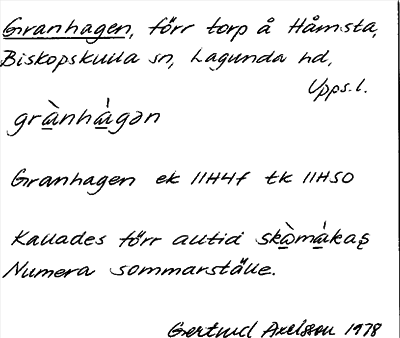 Granhagen, förr torp å Håmsta,
Biskopskulla sn, Lagunda hd,
Upps.l.
grànhágən
Granhagen ek 11H4f tk 11H50
Kallades förr alltid skòmákas
Numera sommarställe.
Gertrud Axelsson 1978